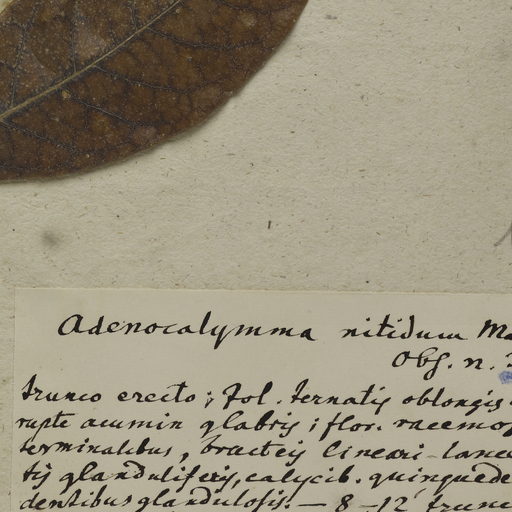 Adenocalymma nitidum Ma
Obs. n.
trunco erecto; fol. ternatis oblongis
rupte acumin glabris; flor. racemos
terminalibus, bracteis lineari-lance
tis glanduliferis, calycib. quinquede
dentibus glandulosis. — 8-12' trunc